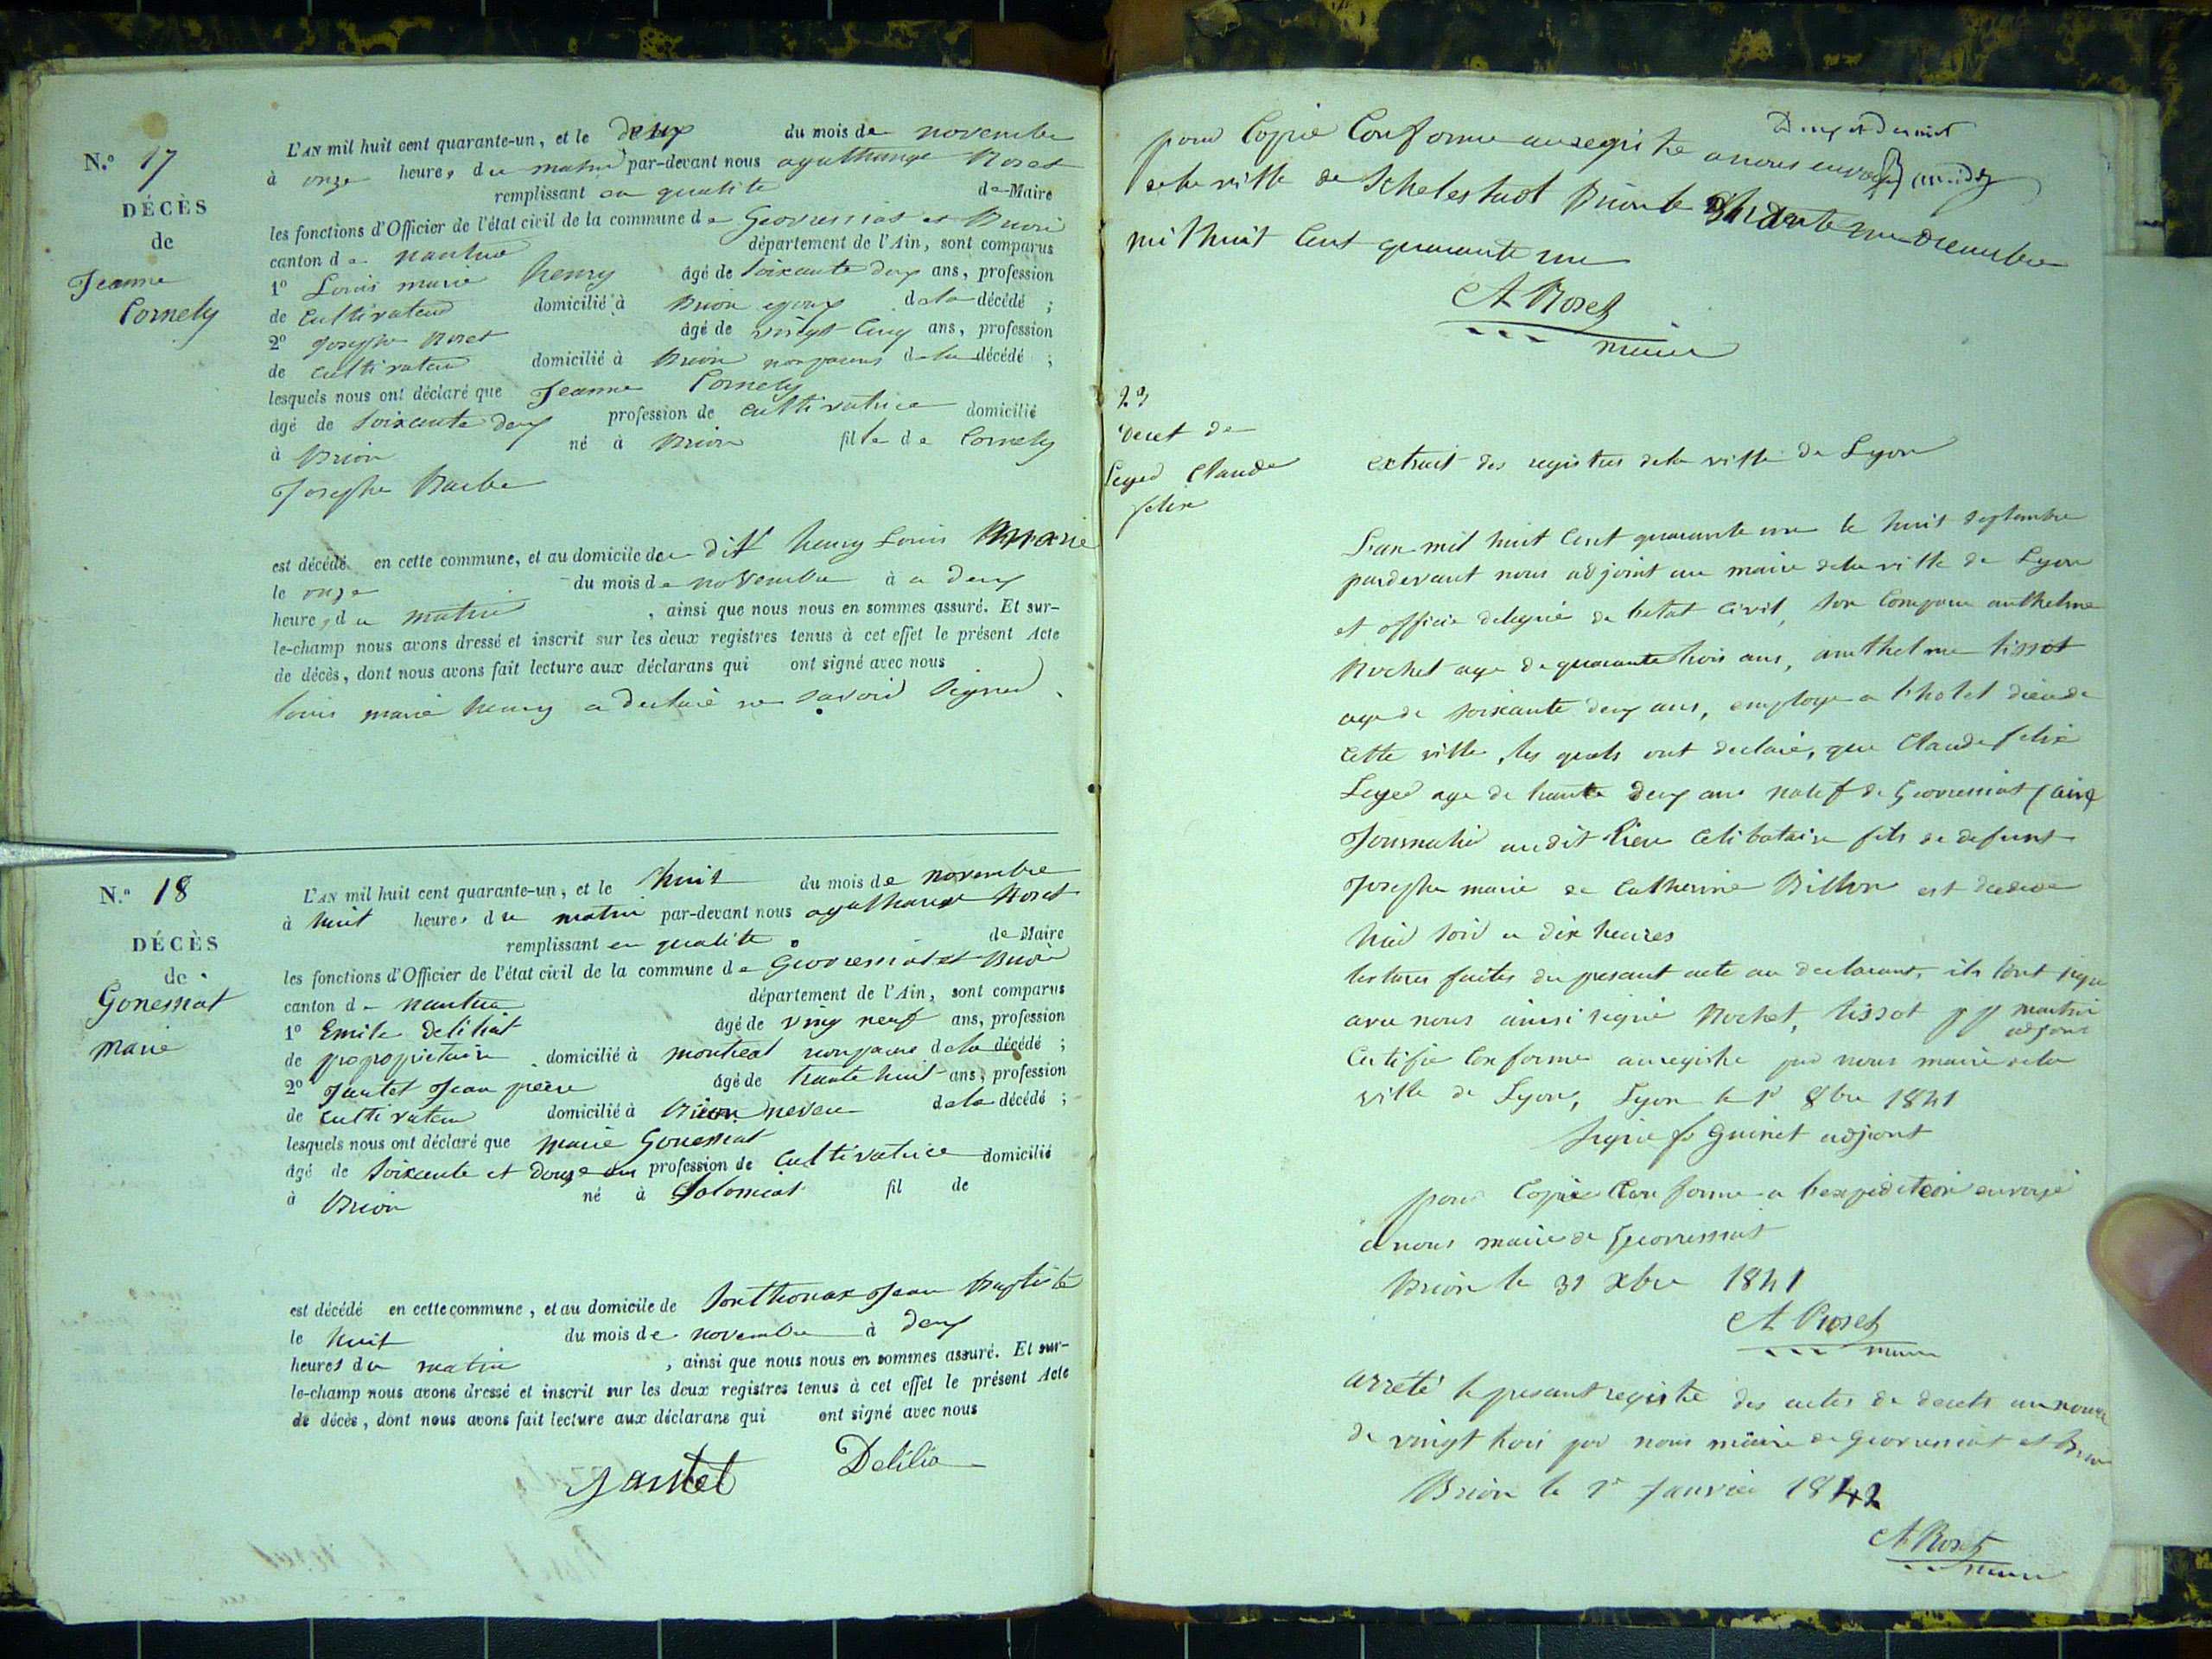 N.o 17
DÉCÈS
de
Jeanne
Cornely
L'AN mil huit cent quarante-un, et le deux du mois de novembre
à onze heures du matin par-devant nous agathange Roset
remplissant en qualite de Maire
les fonctions d'Officier de l'état civil de la commune de Geovressiat et Brion
canton de nantua département de l'Ain, sont comparus
1o Louis marie henry âgé de soixante deux ans, profession
de cultivateur domicilié à Brion epoux de la décédé ;
2o Joseph Roset âgé de vingt cinq ans, profession
de cultivateur domicilié à Brion non parens de la décédé ;
lesquels nous ont déclaré que Jeanne Cornely
âgé de soixante deux profession de cultivatrice domicilié
à Brion né à Brion fille de Cornely
Josephe Barbe
est décédé en cette commune, et au domicile de dit henry Louis marie
le onze du mois de novembre à a deux
heures du matin , ainsi que nous nous en sommes assuré. Et sur-
le-champ nous avons dressé et inscrit sur les deux registres tenus à cet effet le présent Acte
de décès, dont nous avons fait lecture aux déclarans qui ont signé avec nous
louis marie henry a declaré ne savoir signer
N.o 18
DÉCÈS
de
Gonessiat
marie
L'AN mil huit cent quarante-un, et le huit du mois de novembre
à huit heures du matin par-devant nous agathange Roset
remplissant en qualite de Maire
les fonctions d'Officier de l'état civil de la commune de Geovressiat et Brion
canton de nantua département de l'Ain, sont comparus
1o Emile deliliat âgé de ving neuf ans, profession
de propropietaire domicilié à montreal non parens de la décédé ;
2o Jantet Jean pierre âgé de trante huit ans, profession
de cultivateur domicilié à Brion neveu de la décédé ;
lesquels nous ont déclaré que marie Gonessiat
âgé de soixante et douze ans profession de cultivatrice domicilié
à Brion né à Solomiat fil de
est décédé en cette commune, et au domicile de Sonthonax Jean Baptiste
le huit du mois de novembre à deux
heures du matin , ainsi que nous nous en sommes assuré. Et sur-
le-champ nous avons dressé et inscrit sur les deux registres tenus à cet effet le présent Acte
de décès, dont nous avons fait lecture aux déclarans qui ont signé avec nous
Jantet Delilia
pour Copie Conforme au registre a nous envoyé
de la ville de Schelestadt Brion le trente un decembre
mil huit Cent quarante un
A Roset
maire
23
decet de
Leger Claude
felix
extrait des registres de la ville de Lyon
L'an mil huit Cent quarante un le huit septembre
pardevant nous adjoint au maire de la ville de Lyon
et officier delegué de l'etat civil, son comparu anthelme
Rochet age de quarante trois ans, anthelme tissot
age de soixante deux ans, employe a l'hotel dieu de
cette ville, les quels ont declaré, que Claude felix
Leger age de trante deux ans natif de Geovressiat (ain)
Journalier au dit lieu Celibataire fils de defunt
Josephe marie de Catherine Billon est decede
hier soir a dix heures
lectures faites du presant acte au declarant, ils l'ont signe
avec nous ainsi signé Rochet, tissot p p martin
adjoint
Certifié Conforme au registre par nous maire de la
ville de Lyon, Lyon le 1r 8bre 1841
Signe f Guinet adjoint
pour Copie Conforme a l'expedition envoyé
a nous maire de Geovressiat
Brion le 31 xbre 1841
A Roset
maire
arrété le presant registre des actes de decets au nombre
de vingt trois par nous maire de Geovressiat et Brion
Brion le 1r Janvier 1842
A Roset
maire